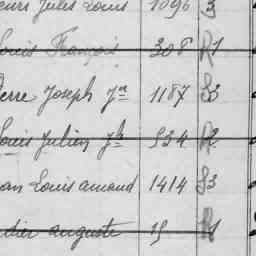 Jules Louis 1096 3
Louis François 308 R1
Pierre Joseph Jn 1187 S3
Louis Julien Jh 534 R2
Louis amand 1414 S3
auguste 19 R1